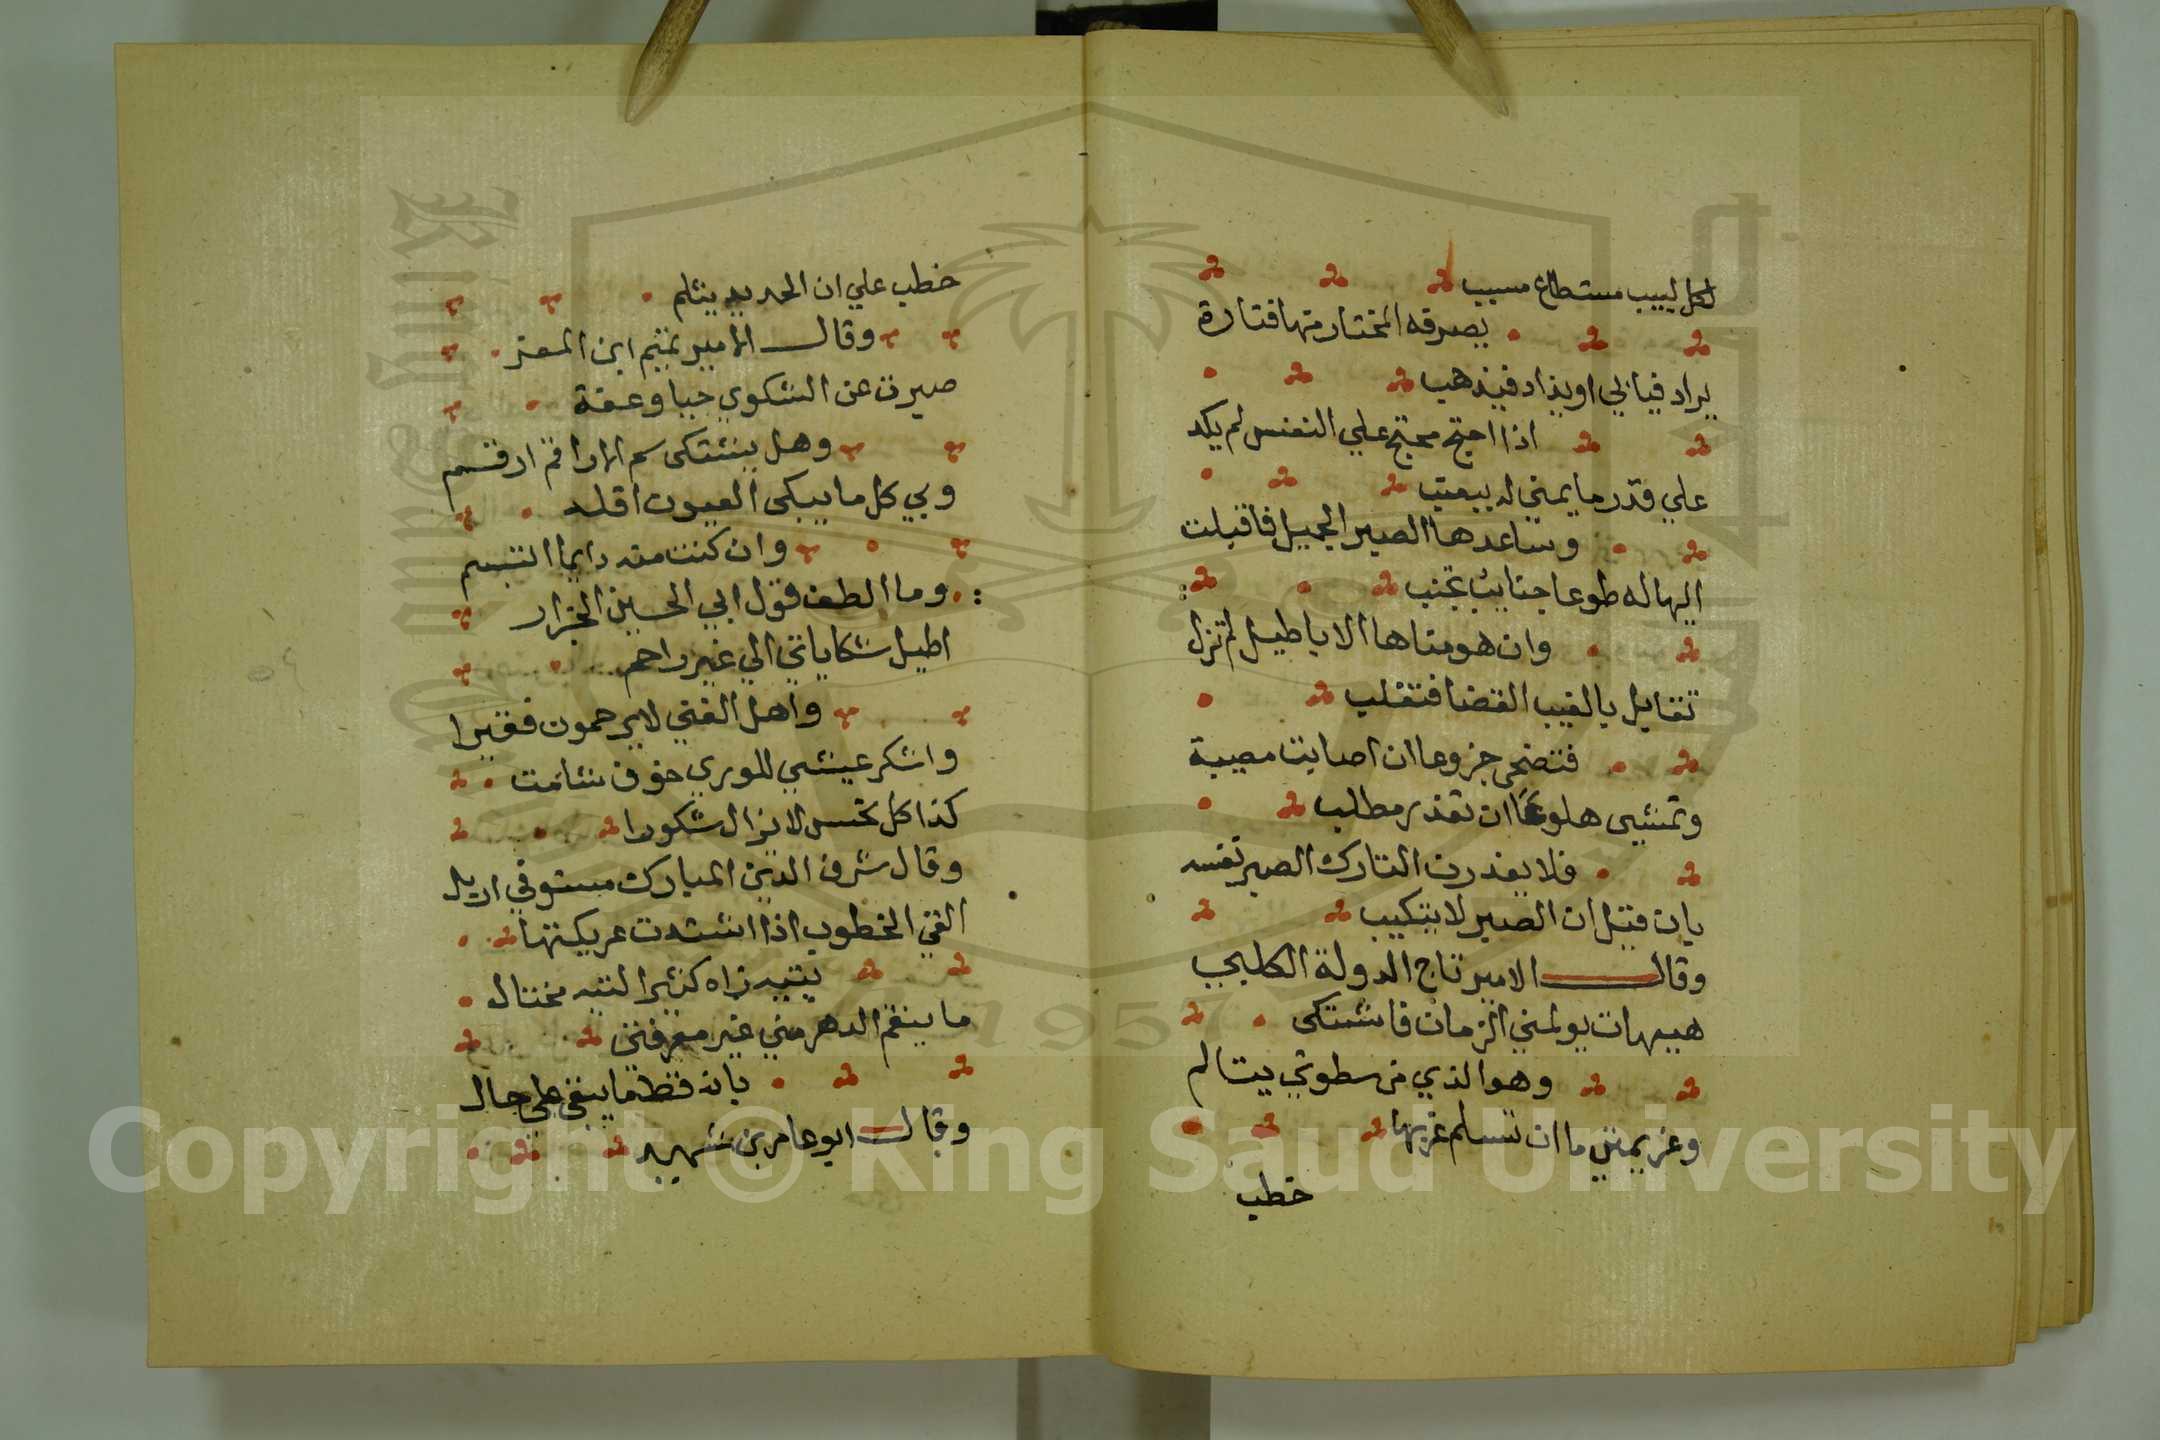 لكل لبيب مستطاع مسبب
يصرفه المختار منها فتارة
يراد فيابي او يذاد فيذهب
اذا احتج محتج علي النفس لم يكد
علي قدر ما يمني له يبعتب
وساعدها الصبر الجميل فاقبلت
اليها له طوعا جنايب تجنب
وان هو مناها الاباطيل لم تزل
تقابل بالغيب القضا فتغلب
فتضحي جزوعا ان اصابت مصيبة
وتمشي هلوعا ان تعذر مطلب
فلا يعذرن التارك الصبر نفسه
بان قيل ان الصبر لا يتكيب
وقال الامير تاج الدولة الكلبي
هيهات يولمني الزمان فاشتكي
وهو الذي من سطوتي يتالم
وعزيمتي ما ان تسلم غربها
خطب
خطب علي ان الحديد يثلم
وقال الامير تميم ابن المعتز
صبرت عن الشكوي حيا وعفة
وهل يشتكي سم الاراقم ارقم
وبي كل ما يبكي العيون اقله
وان كنت منه دايما اتبسم
وما الطف قول ابي الحسين الجزار
اطيل شكاياتي الي غير راحم
واهل الغني لا يرحمون فقيرا
واشكر عيشي للوري خوف شامت
كذا كل نحس لا يزال شكورا
وقال شرف الدين المبارك مستوفي اربل
الفي الخطوب اذا اشتدت عريكتها
يتيه تراه كثير التيه مختال
ما ينقم الدهر مني غير معرفتي
بانه قط ما يبقي علي حال
وقال ابو عامر بن شهيد
Copyright © King Saud University
King Saud University
1957